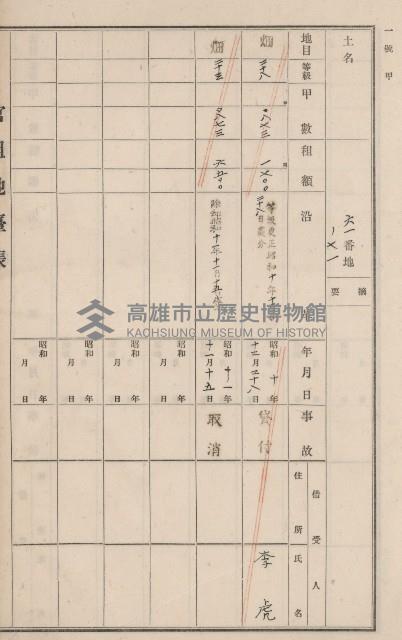 一號甲
土名
六一番地
ノ一
摘要
地目
等級
甲數
租額
沿革
年月日
事故
借受人
住所
氏名
畑
二十八
八七三
一七〇〇
等級更正昭和十年十
二十八日處分
昭和十年
十二月二十八日
貸付
李虎
畑
二十三
八七三
六五〇
昭和十一年
十一月十五日
取消
昭和 年
月 日
昭和 年
月 日
昭和 年
月 日
昭和 年
月 日
官租地臺帳
高雄市立歷史博物館
KAOHSIUNG MUSEUM OF HISTORY